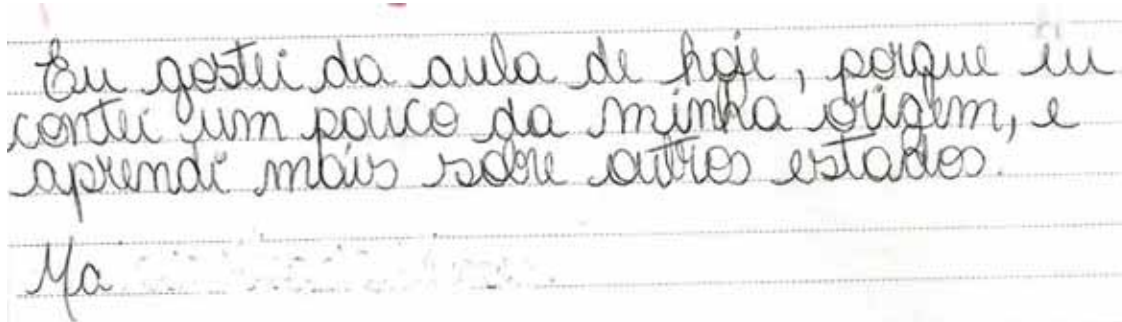 Eu gostei da aula de hoje, porque eu
contei um pouco da minha origem, e
aprendi mais sobre outros estados.
Ma